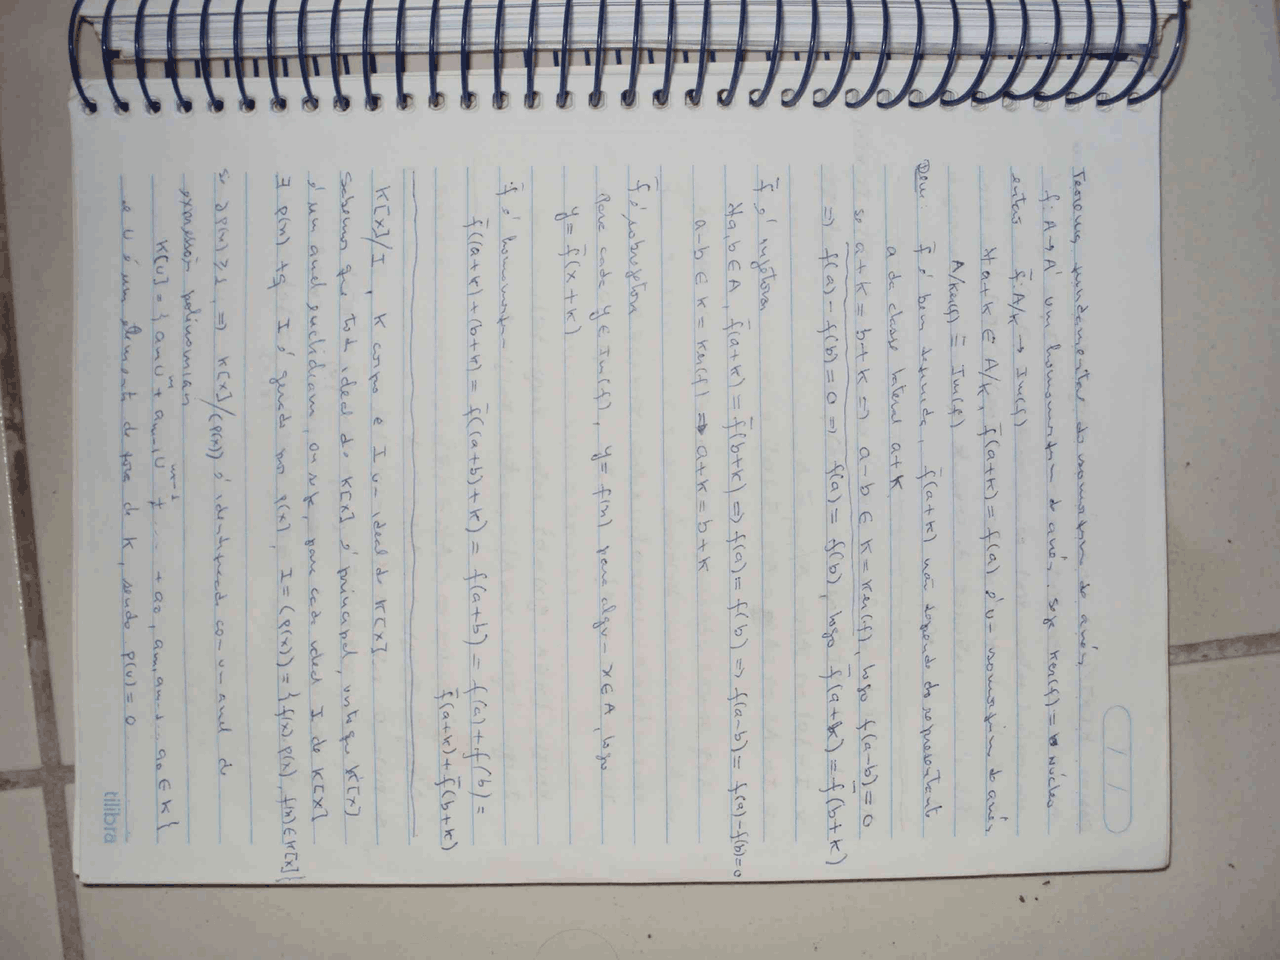 / /
Teorema fundamental do isomorfism de anéis
f: A → A' um homomorfism de anéis. Seja Ker(f) = K núcleo
então f̄: A/K → Im(f)
∀ a+K ∈ A/K, f̄(a+K) = f(a) é u- isomorfism de anéis
A/Ker(f) ≅ Im(f)
Dem: f̄ é bem definida, f̄(a+K) não depende do representant
a da classe lateral a+K
se a+K = b+K ⇒ a-b ∈ K = Ker(f), logo f(a-b) = 0
⇒ f(a) - f(b) = 0 ⇒ f(a) = f(b), logo f̄(a+K) = f̄(b+K)
f̄ é injetora
∀ a, b ∈ A, f̄(a+K) = f̄(b+K) ⇒ f(a) = f(b) ⇒ f(a-b) = f(a) - f(b) = 0
a-b ∈ K = Ker(f) ⇒ a+K = b+K
f̄ é sobrejetora
Para cada y ∈ Im(f), y = f(x) para algu- x ∈ A, logo
y = f̄(x+K)
f̄ é homomorfis-
f̄((a+K) + (b+K)) = f̄((a+b)+K) = f(a+b) = f(a) + f(b) =
f̄(a+K) + f̄(b+K)
K[x]/I, K corpo e I u- ideal de K[x]
Sabemos que tod ideal de K[x] é principal, visto que K[x]
é um anel euclidiano, ou seja, para cada ideal I de K[x]
∃ p(x) tq I é gerado por p(x), I = (p(x)) = {f(x) p(x), f(x) ∈ K[x]}
se ∂p(x) ≥ 1, ⇒ K[x]/(p(x)) é identificado co- u- anel de
expressões polinomiais
K[u] = {aₘuᵐ + aₘ₋₁uᵐ⁻¹ + ... + a₀, aₘ, aₘ₋₁ .. a₀ ∈ K}
e u é um elemento de fora de K, sendo p(u) = 0
tilibra